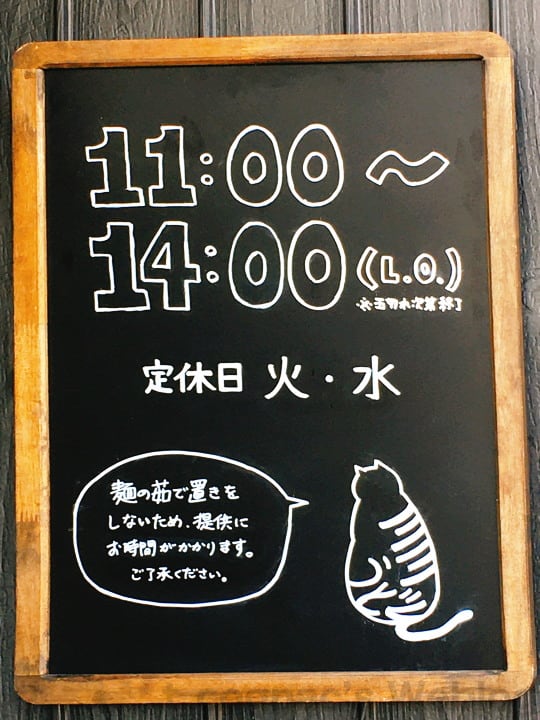 11:00〜
14:00(L.O.)
定休日 火・水
麺の茹で置きを
しないため、提供に
お時間がかかります。
ご了承ください。